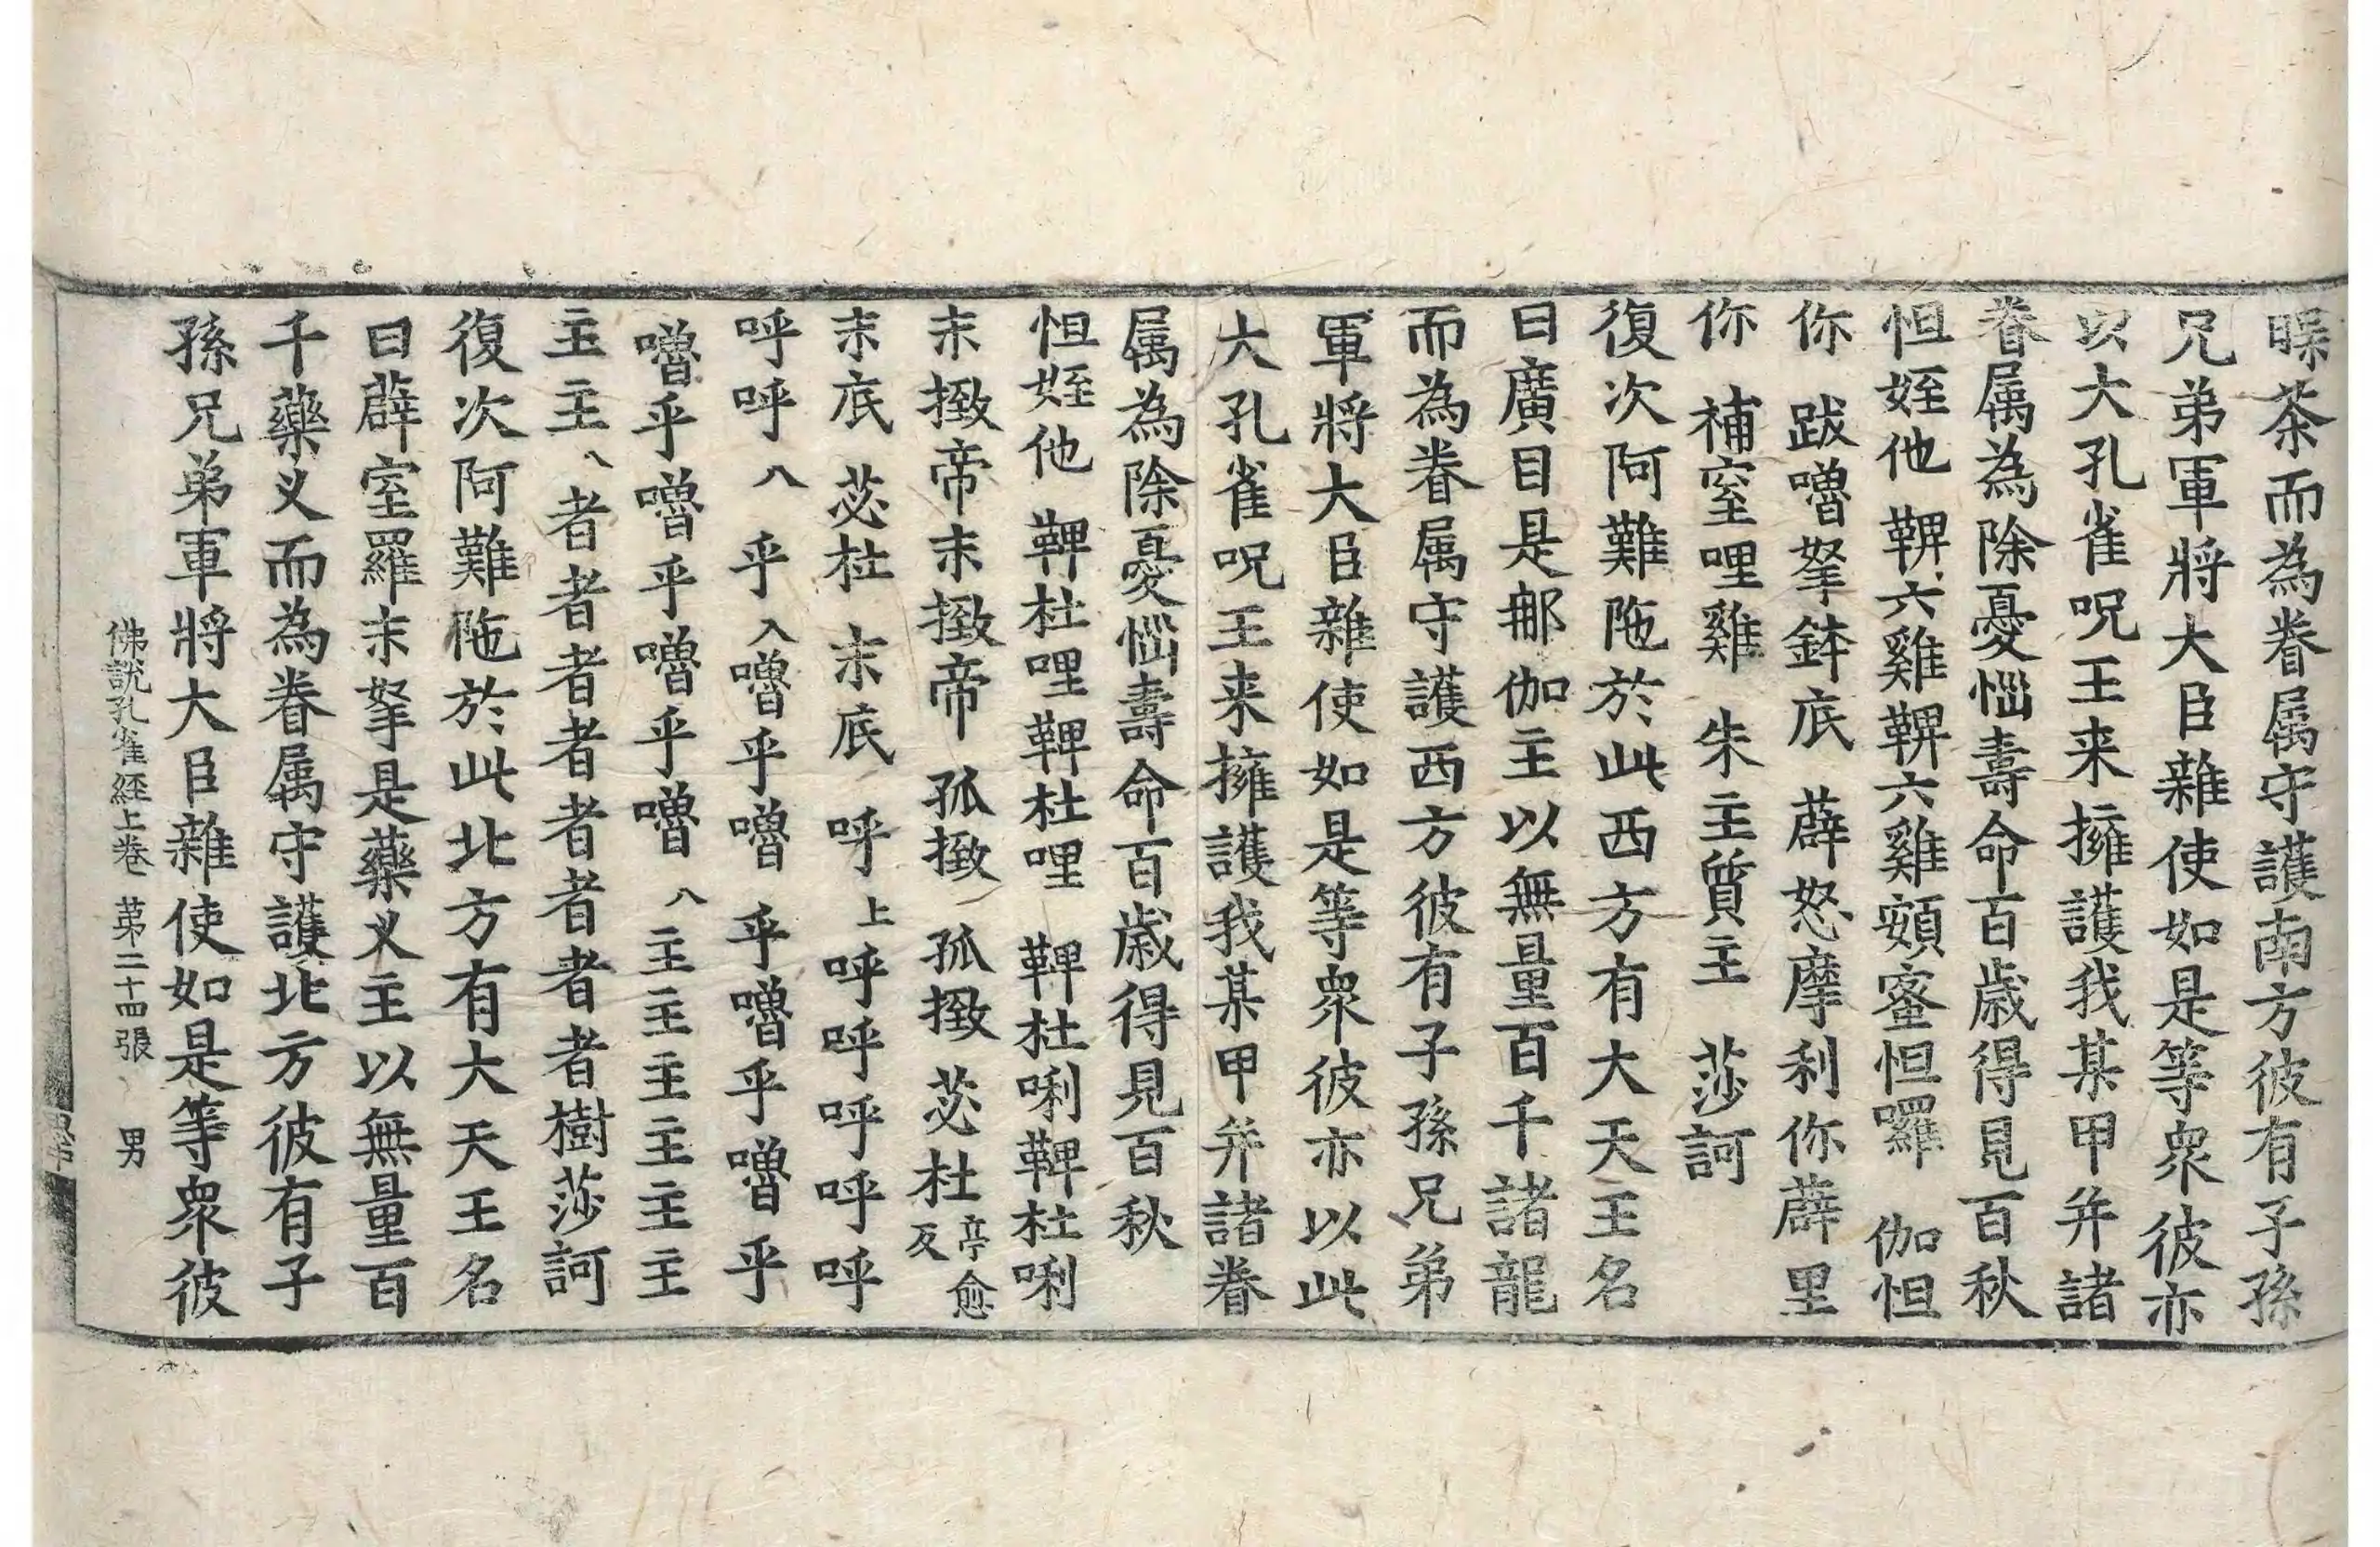 畔茶而為眷属守護南方彼有子孫
兄弟軍將大臣雜使如是等衆彼亦
以大孔雀呪王来擁護我某甲并諸
眷属為除憂惱壽命百歳得見百秋
怛姪他 鞞六雞鞞六雞頞蜜怛囉 伽怛
你 跋嚕拏鉢底 薜怒摩利你薜里
你 補窒哩雞 朱主質主 莎訶
復次阿難陁於此西方有大天王名
曰廣目是郍伽主以無量百千諸龍
而為眷属守護西方彼有子孫兄弟
軍將大臣雜使如是等衆彼亦以此
大孔雀呪王来擁護我某甲并諸眷
属為除憂惱壽命百歳得見百秋
怛姪他 鞞杜哩鞞杜哩 鞞杜唎鞞杜唎
末撥帝末撥帝 孤撥 孤撥 苾杜亭愈反
末底 苾杜 末底 呼上呼呼呼呼呼
呼呼八 乎入嚕乎嚕 乎嚕乎嚕乎
嚕乎嚕乎嚕乎嚕八主主主主主主
主主八者者者者者者者者樹莎訶
復次阿難陁於此北方有大天王名
曰薜室羅末拏是藥义主以無量百
千藥义而為眷属守護北方彼有子
孫兄弟軍將大臣雜使如是等衆彼
佛說孔雀経上巻 苐二十四張 男